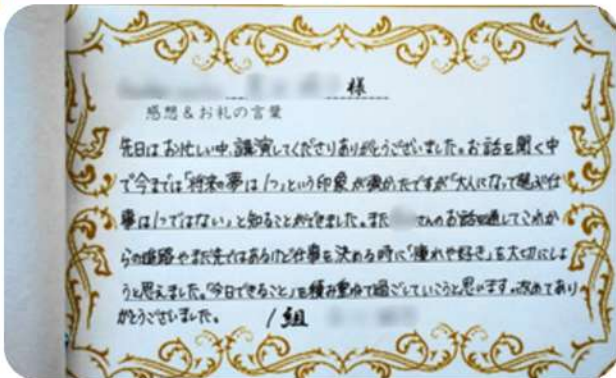 様
感想&お礼の言葉
先日はお忙しい中、講演してくださりありがとうございました。お話を聞く中
で今までは「将来の夢は1つ」という印象が強かたですが「大人になって選ぶ仕
事は1つではない」と知ることができました。また さんのお話を通してこれか
らの進路やまだ先ではあるけど仕事を決める時に「憧れや好き」を大切にしよ
うと思えました。「今日できること」を積み重ねて過ごしていこうと思います。改めてあり
がとうございました。 1組